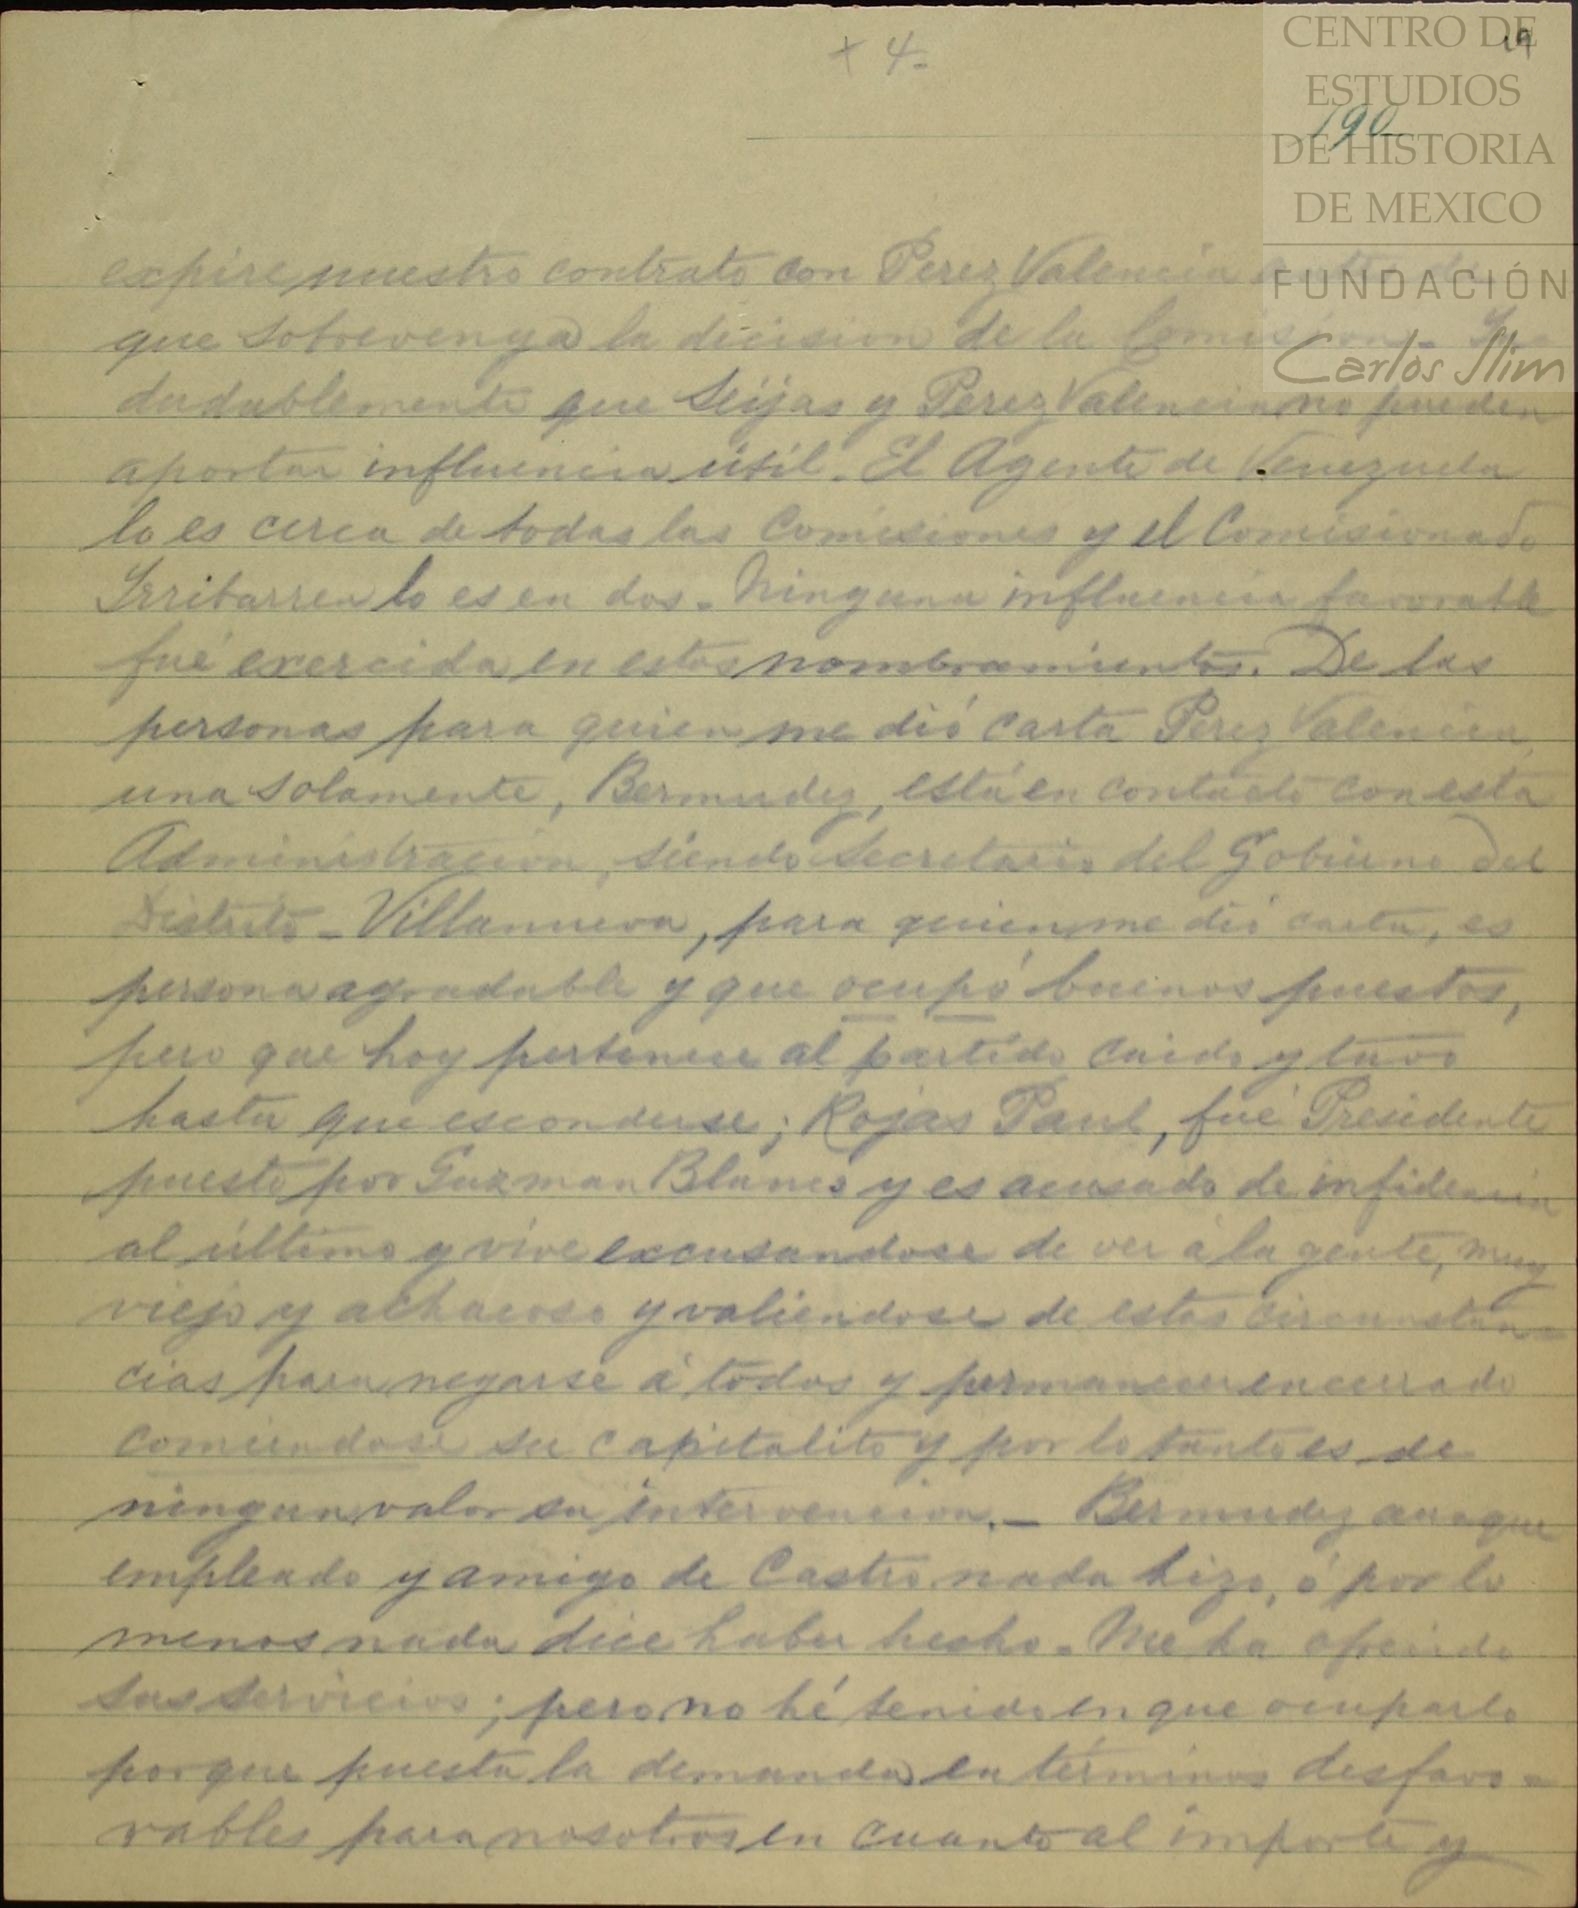 + 4.
19
190
CENTRO DE
ESTUDIOS
DE HISTORIA
DE MEXICO
FUNDACIÓN
Carlos Slim
expire nuestro contrato con Perez Valencia antes de
que sobrevenga la decision de la Comision. In
dudablemente que Seijas y Perez Valencia no pueden
aportar influencia útil. El Agente de Venezuela
lo es cerca de todas las Comisiones y el Comisionado
Irribarren lo es en dos. Ninguna influencia favorable
fué exercida en estos nombramientos. De las
personas para quien me dió carta Perez Valencia,
una solamente, Bermudez, está en contacto con esta
Administracion, siendo Secretario del Gobierno del
Distrito - Villanueva, para quien me dió carta, es
persona agradable y que ocupó buenos puestos,
pero que hoy pertenece al partido caido y tuvo
hasta que esconderse; Rojas Paul, fué Presidente
puesto por Guzman Blanco y es acusado de infidencia
al último y vive excusandose de ver á la gente, muy
viejo y achacoso y valiendose de estas circunstan-
cias para negarse á todos y permanecer encerrado
comiendose su capitalito y por lo tanto es de
ningun valor su intervencion. - Bermudez aunque
empleado y amigo de Castro nada hizo, ó por lo
menos nada dice haber hecho. Me ha ofrecido
sus servicios; pero no hé tenido en que ocuparlo
porque puesta la demanda en términos desfavo-
rables para nosotros en cuanto al importe y